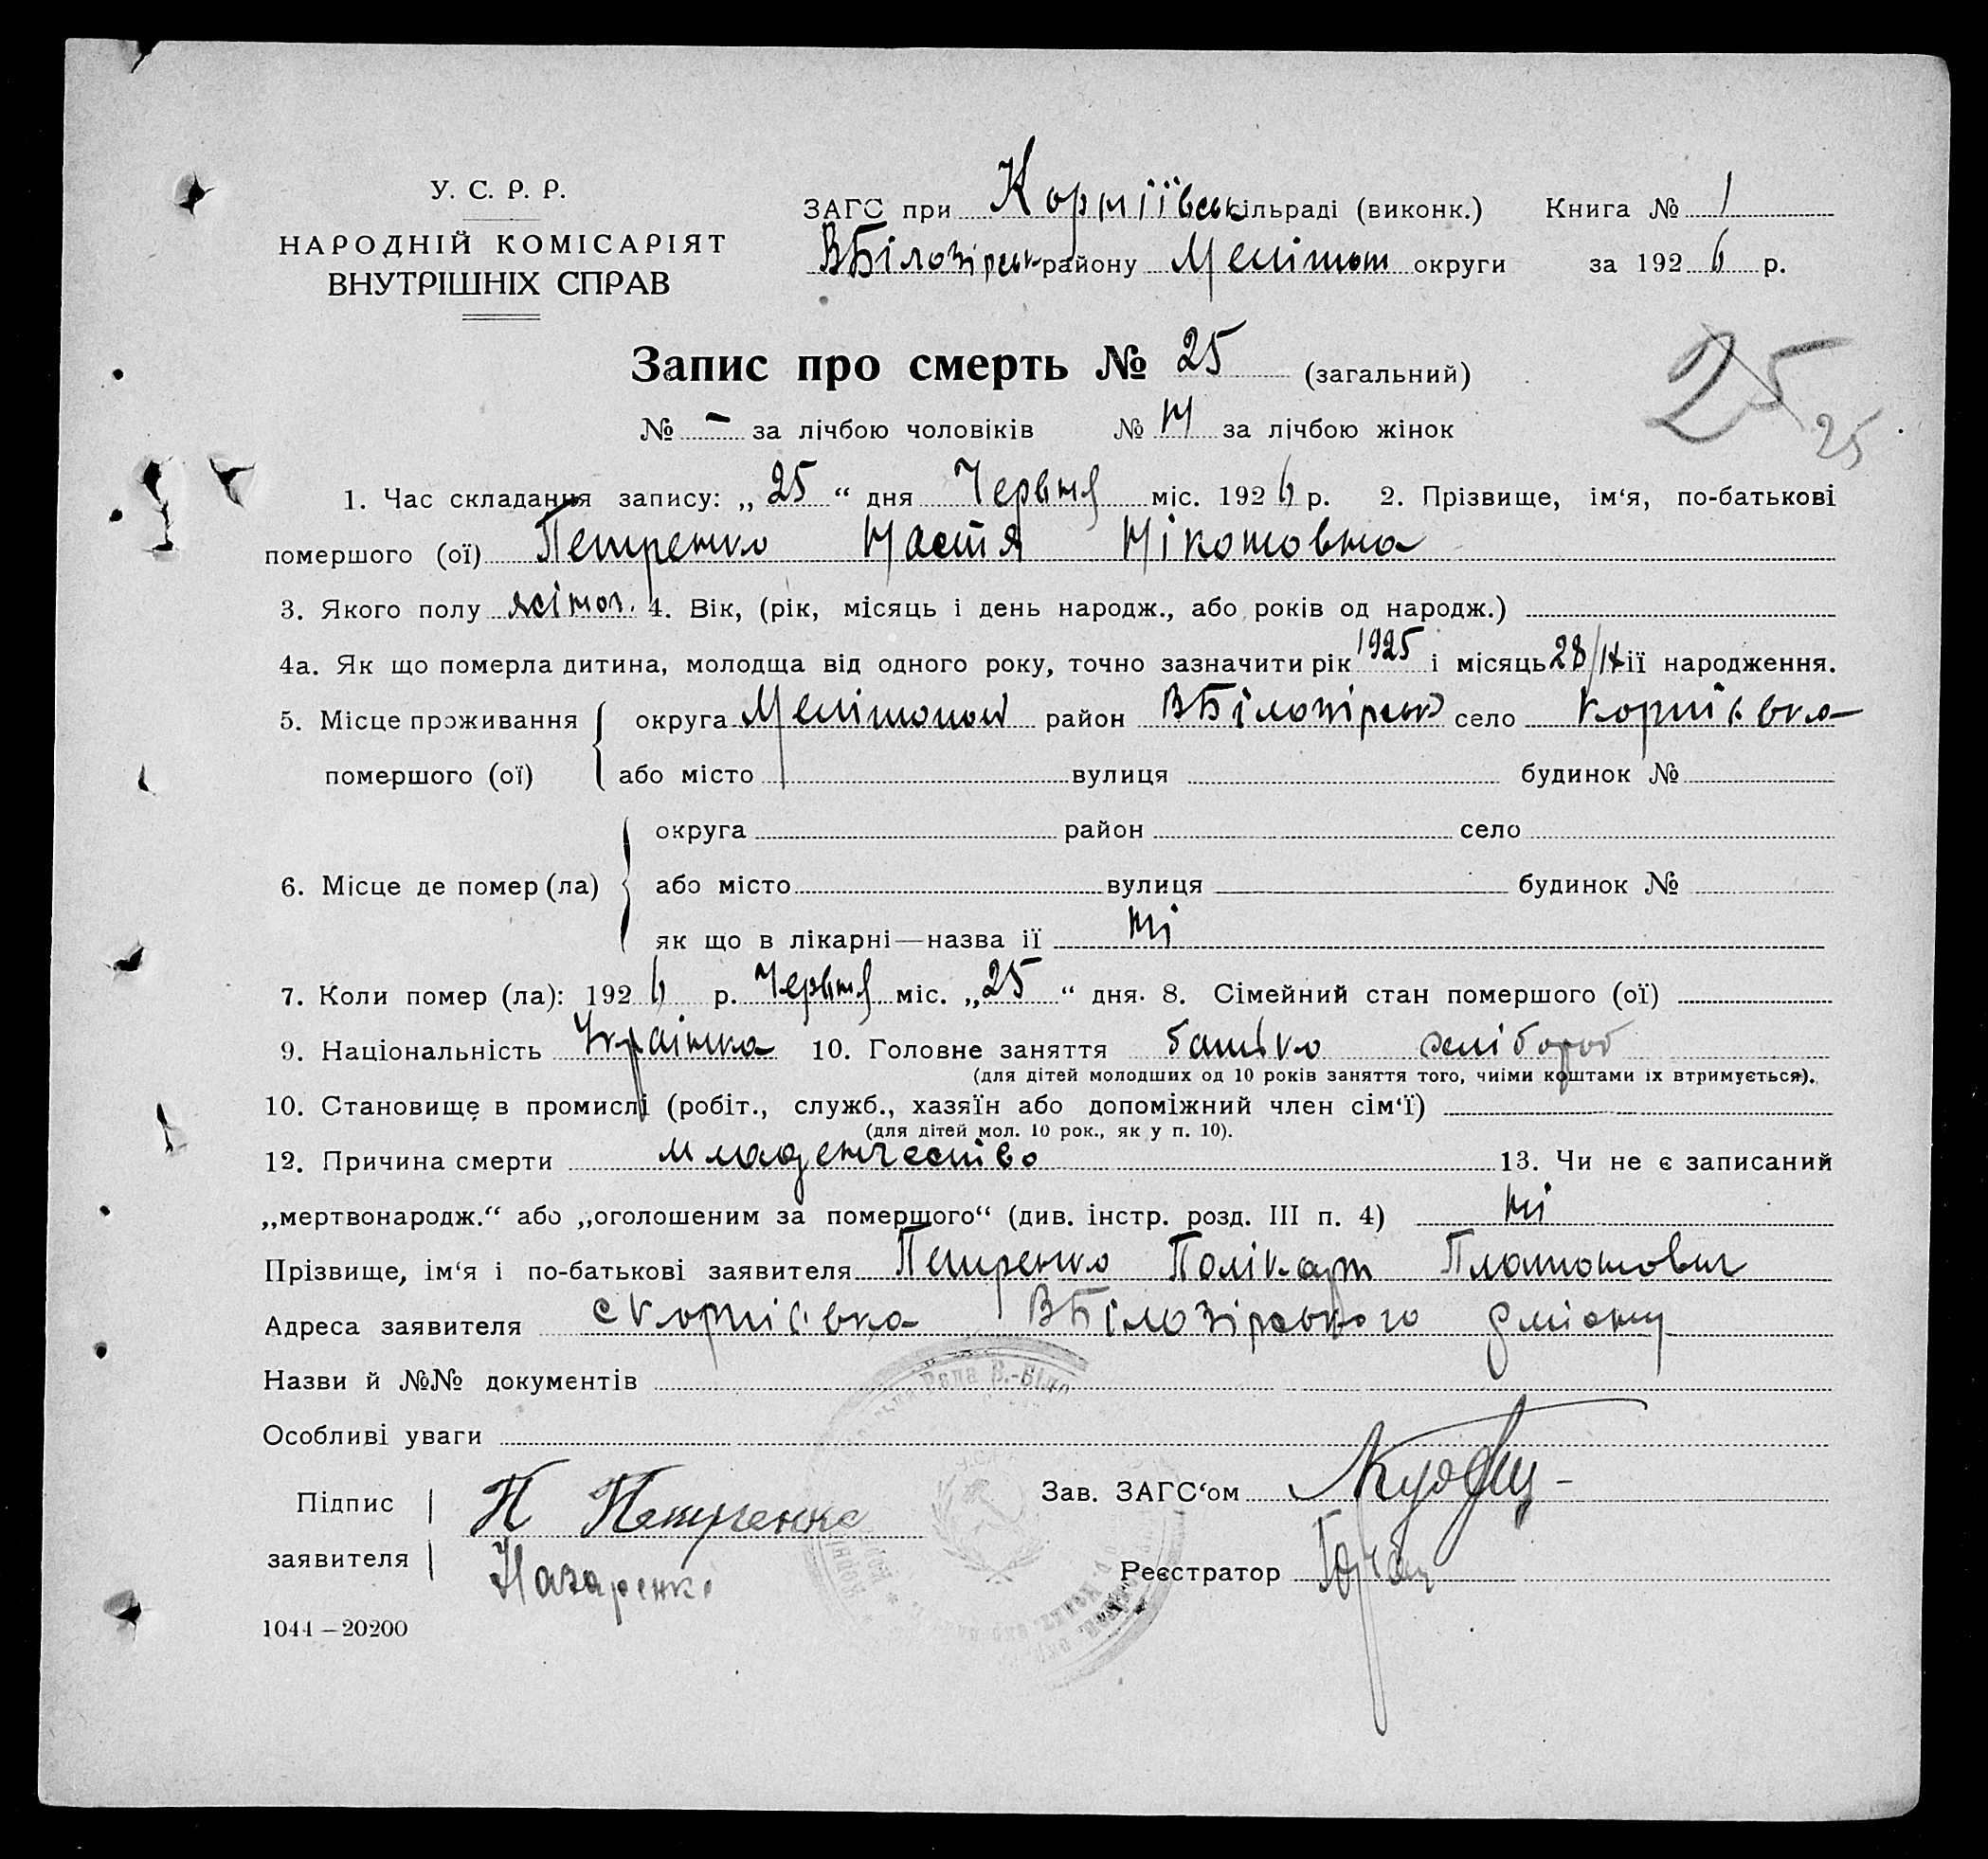 У. С. Р. Р.
НАРОДНІЙ КОМІСАРІЯТ
ВНУТРІШНІХ СПРАВ
ЗАГС при Корніївськ ільраді (виконк.) Книга № 1
ВБілозірськ району Меліт округи за 192 6 р.
Запис про смерть № 25 (загальний)
25
25
№ – за лічбою чоловіків № за лічбою жінок
1. Час складання запису: „ 25 “ дня Червня міс. 192 6 р. 2. Прізвище, ім‘я, по-батькові
помершого (ої) Петренко НастяНіконовна
3. Якого полу жіноч. 4. Вік, (рік, місяць і день народж., або років од народж.)
4а. Як що померла дитина, молодща від одного року, точно зазначити рік 1925 і місяць 28/IX ії народження.
5. Місце проживання округа Мелітопол район ВБілозірськ село Корніївка
помершого (ої) або місто вулиця будинок №
округа район село
6. Місце де помер (ла) або місто вулиця будинок №
як що в лікарні—назва ії ні
7. Коли помер (ла): 192 6 р. Червня міс. „ 25 “ дня. 8. Сімейний стан помершого (ої)
9. Національність Українка 10. Головне заняття батько хлібороб
(для дітей молодших од 10 років заняття того, чиіми коштами їх втримується).
10. Становище в промислі (робіт., служб., хазяїн або допоміжний член сім‘ї)
(для дітей мол. 10 рок., як у п. 10).
12. Причина смерти младенчество 13. Чи не є записаний
„мертвонародж.“ або „оголошеним за померщого“ (див. інстр. розд. III п. 4) ні
Прізвище, ім‘я і по-батькові заявителя Петренко Полікарп Платонович
Адреса заявителя с Корніівка ВБілозірського
Назви й №№ документів
Особливі уваги
Підпис Н Петренко Зав. ЗАГС‘ом
заявителя Назаренко Реєстратор
1044—20200